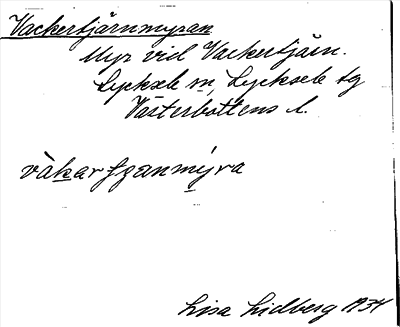 Vackertjärnmyran
Myr vid Vackertjärn.
Lycksele sn, Lycksele tg
Västerbottens l.
Lisa Lidberg 1934